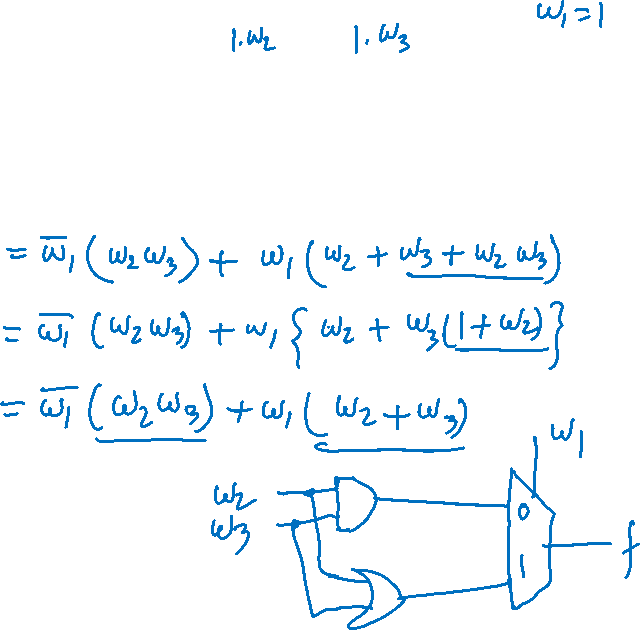 1.w₂ 1.w₃ w₁=1
= w̅₁(w₂w₃) + w₁(w₂ + w₃ + w₂ w₃)
= w̅₁ (w₂w₃) + w₁{ w₂ + w₃(1+w₂)}
= w̅₁(w₂w₃) + w₁(w₂+w₃)
w₁
w₂
w₃
0
1
f